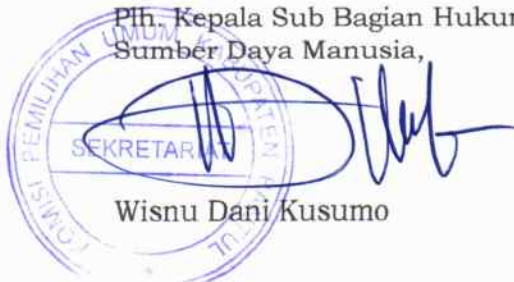 Plh. Kepala Sub Bagian Hukum
Sumber Daya Manusia,
KOMISI PEMILIHAN UMUM KABUPATEN BANTUL
SEKRETARIAT
Wisnu Dani Kusumo